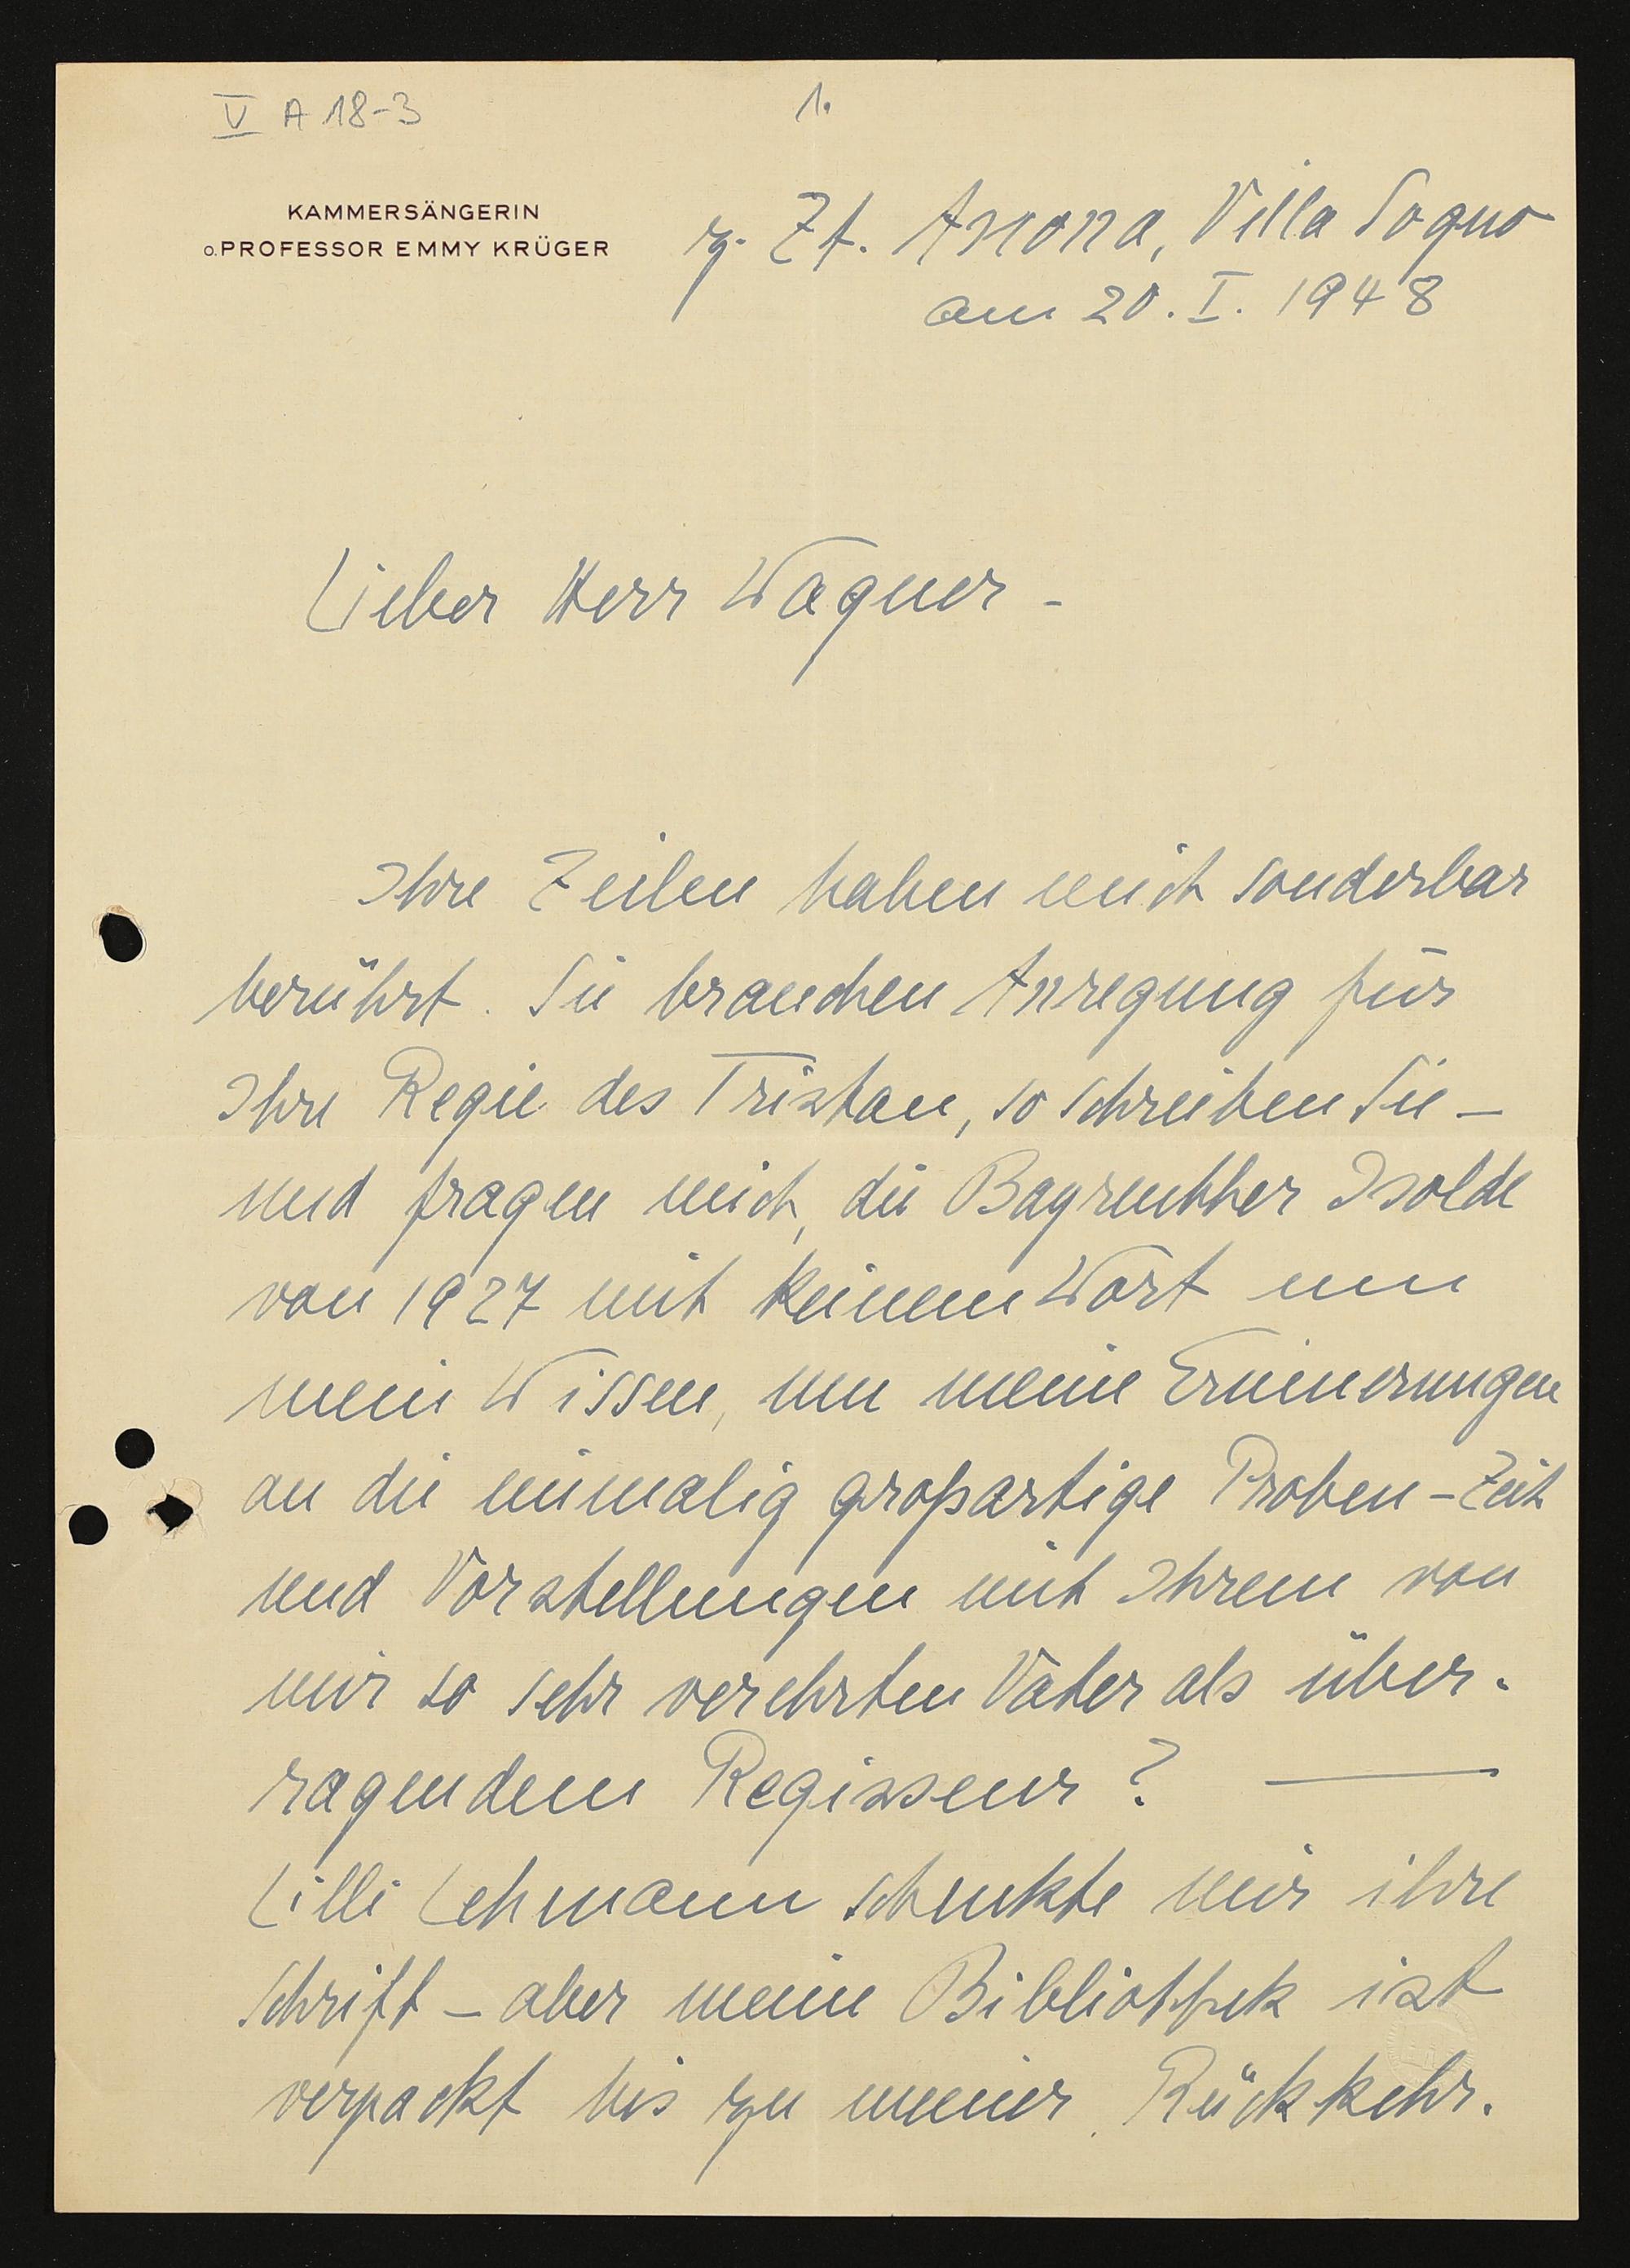 V A 18-3
1.
KAMMERSÄNGERIN
o. PROFESSOR EMMY KRÜGER
z. Zt. Ascona, Villa Sogno
am 20. I. 1948
Lieber Herr Wagner -
Ihre Zeilen haben mich sonderbar
berührt. Sie brauchen Anregung für
Ihre Regie des Tristan, so schreiben Sie –
und fragen mich, die Bayreuther Isolde
von 1927 mit keinem Wort um
mein Wissen, um meine Erinnerungen
an die einmalig großartige Proben-Zeit
und Vorstellungen mit Ihrem von
mir so sehr verehrten Vater als über-
ragendem Regisseur? —
Lilli Lehmann schenkte mir ihre
Schrift – aber meine Bibliothek ist
verpackt bis zu meiner Rückkehr.